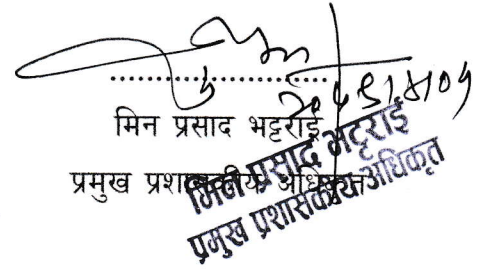 मिन प्रसाद भट्टराई
प्रमुख प्रशासकीय अधिकृत
मिन प्रसाद भट्टराई
प्रमुख प्रशासकीय अधिकृत